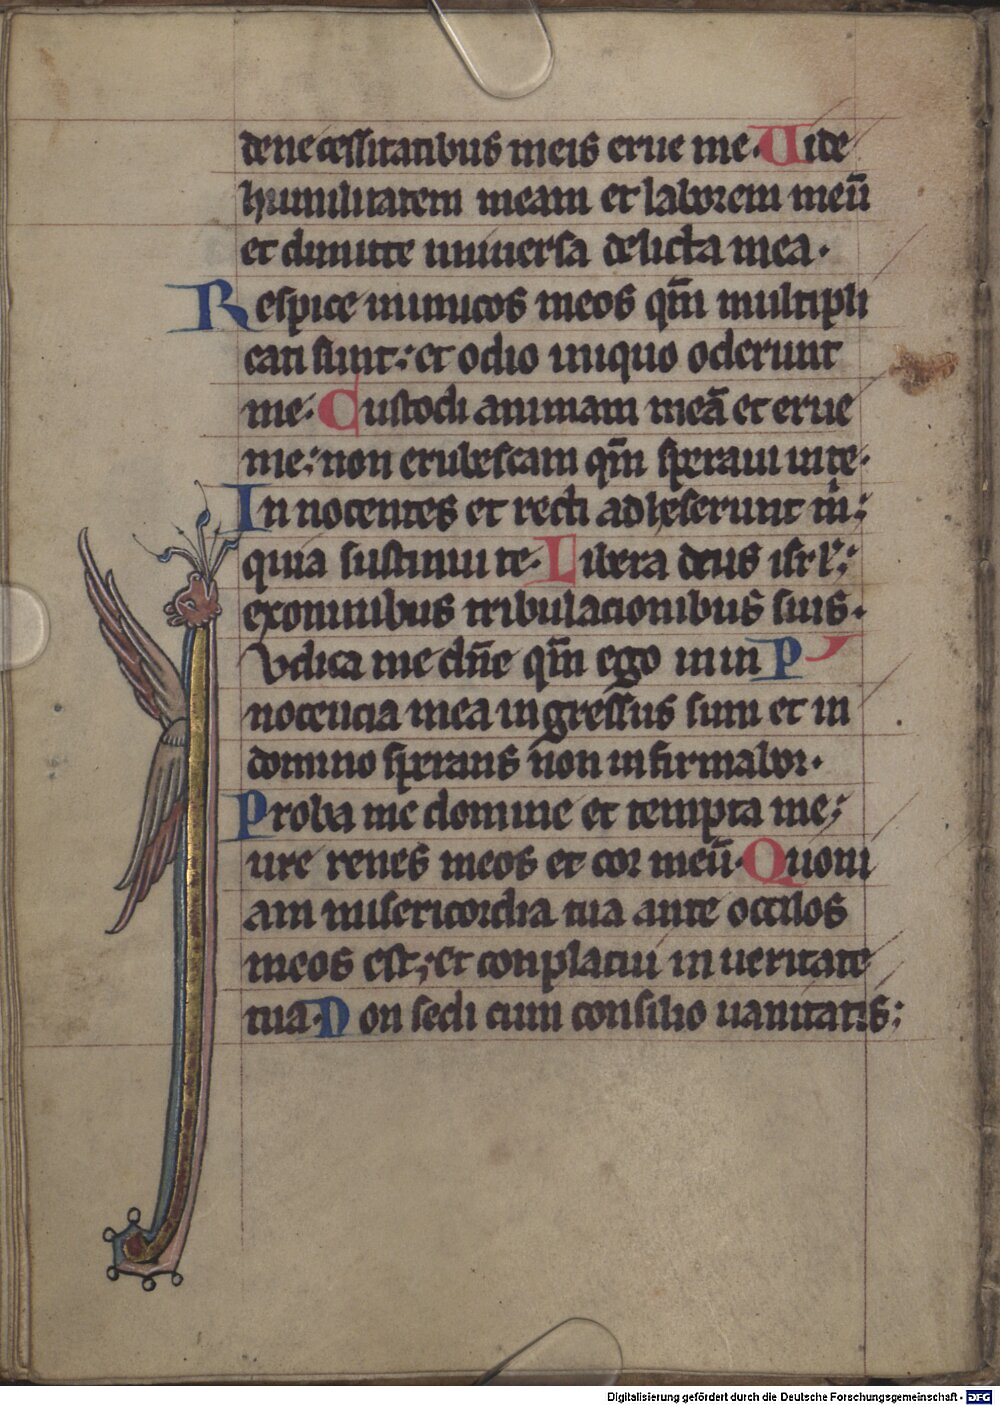 de necessitatibus meis erue me. Uide
humilitatem meam et laborem meū
et dimitte uniuersa delicta mea.
Respice inimicos meos qm̄ multipli
cati sunt: et odio iniquo oderunt
me. Custodi animam meā et erue
me: non erubescam qm̄ speraui in te.
Innocentes et recti adheserunt m̄:
quia sustinui te. Libera deus isrl̄:
ex omnibus tribulacionibus suis.
Iudica me dn̄e qm̄ ego in in P
nocencia mea ingressus sum et in
domino sperans non infirmabor.
Proba me domine et tempta me:
ure renes meos et cor meū. Quoni
am misericordia tua ante occulos
meos est: et conplacui in ueritate
tua. Non sedi cum consilio uanitatis:
Digitalisierung gefördert durch die Deutsche Forschungsgemeinschaft - DFG